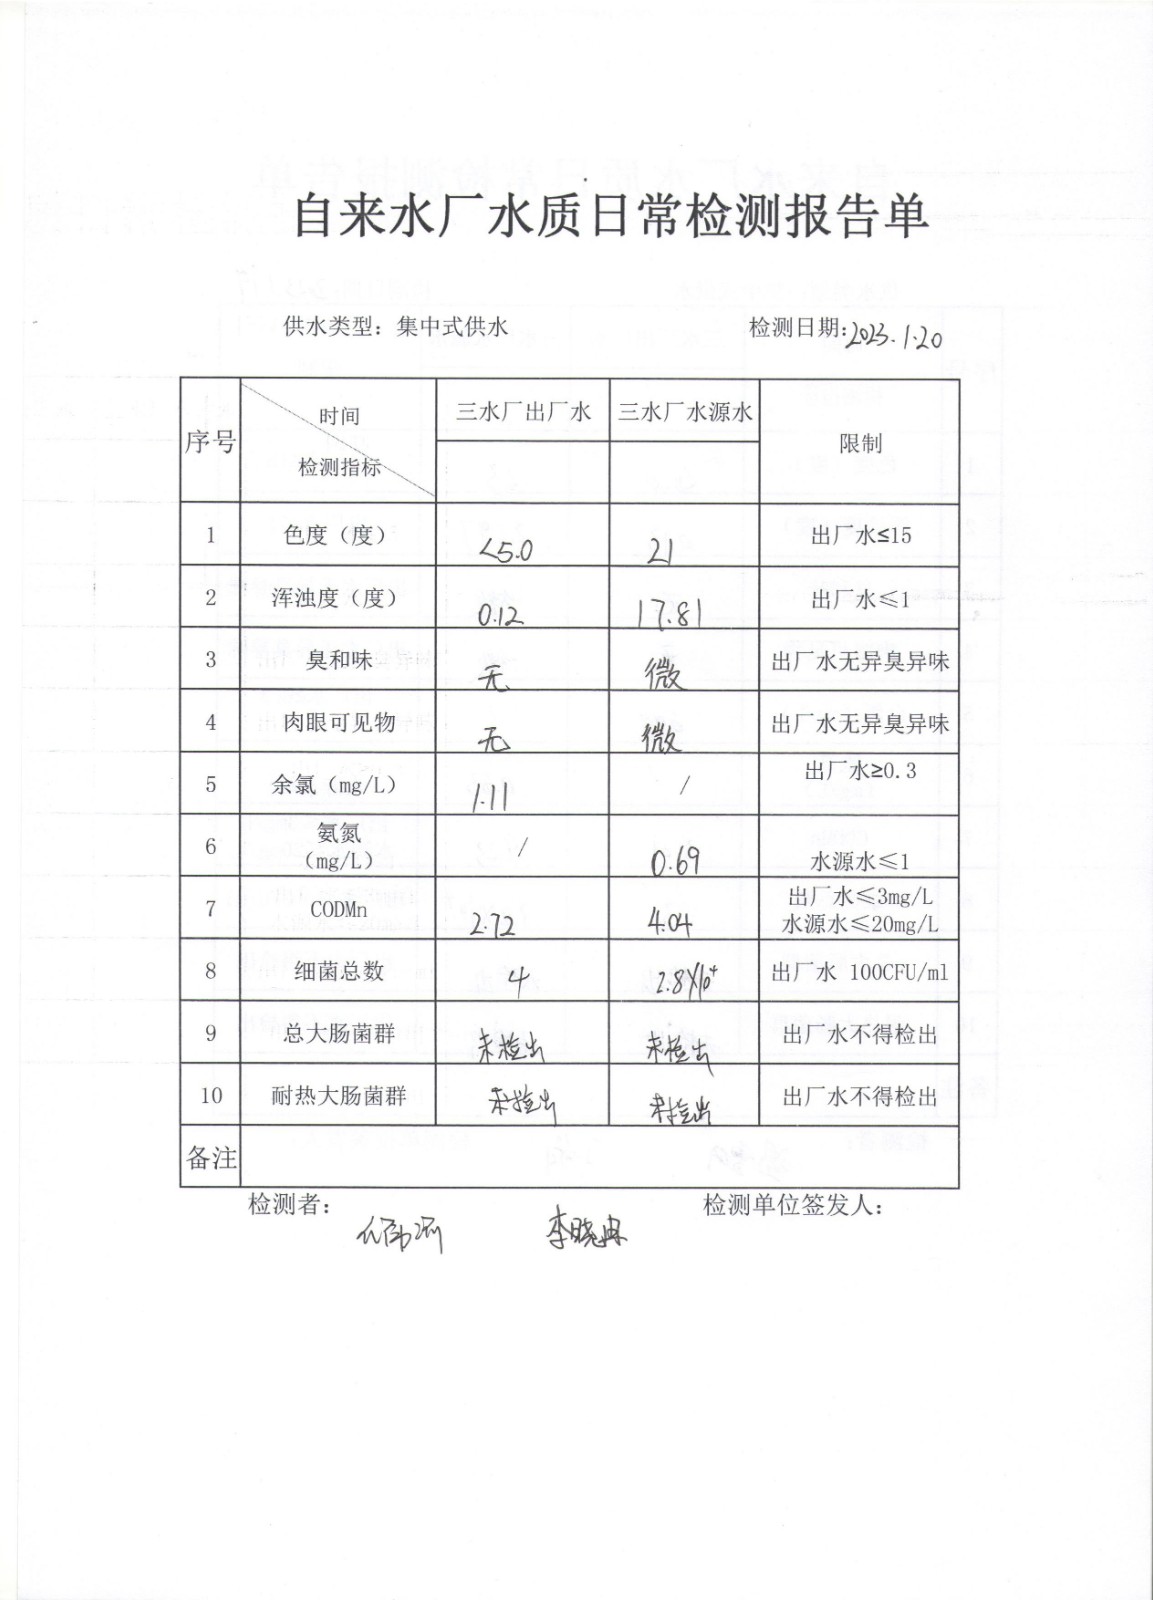 自来水厂水质日常检测报告单
供水类型：集中式供水 检测日期：2023.1.20
序号 时间 检测指标 三水厂出厂水 三水厂水源水 限制
1 色度（度） <5.0 21 出厂水≤15
2 浑浊度（度） 0.12 17.81 出厂水≤1
3 臭和味 无 微 出厂水无异臭异味
4 肉眼可见物 无 微 出厂水无异臭异味
5 余氯（mg/L） 1.11 / 出厂水≥0.3
6 氨氮（mg/L） / 0.69 水源水≤1
7 CODMn 2.72 4.04 出厂水≤3mg/L 水源水≤20mg/L
8 细菌总数 4 出厂水 100CFU/ml
9 总大肠菌群 未检出 未检出 出厂水不得检出
10 耐热大肠菌群 未检出 未检出 出厂水不得检出
备注
检测者： 检测单位签发人：